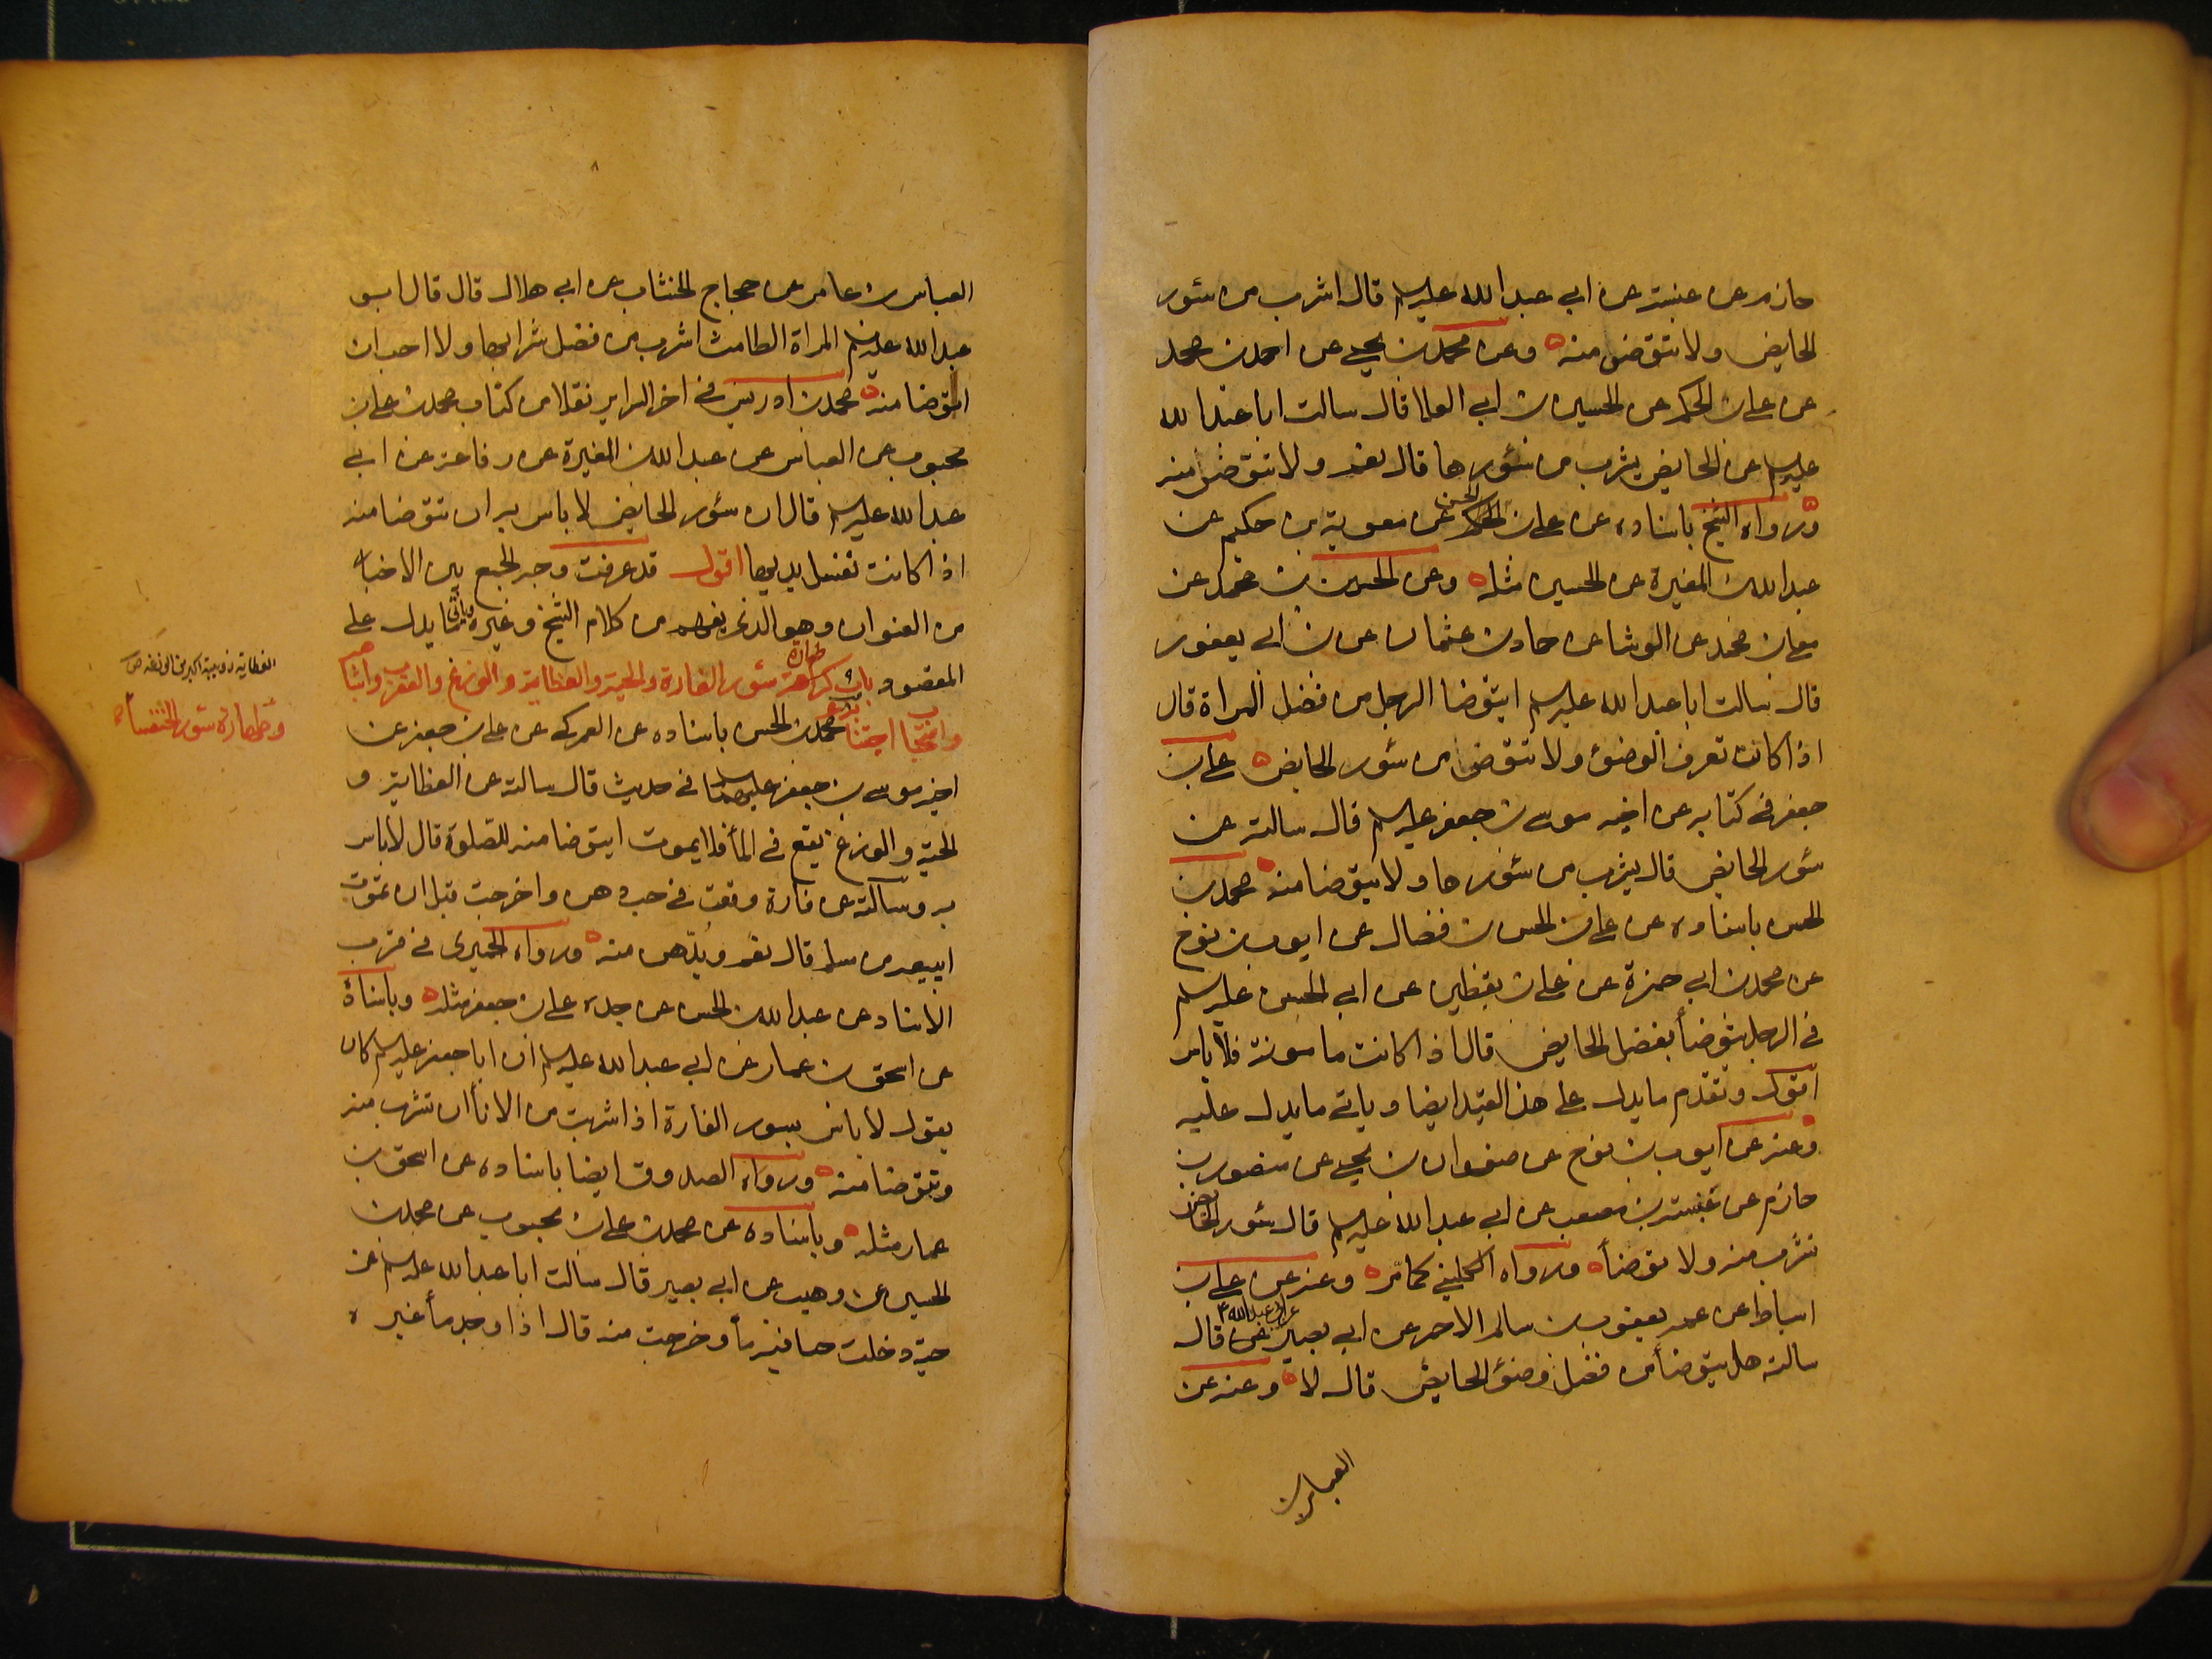 حازم عن عنبسة عن ابي عبد الله عليه السلم قال اشرب من سئور
الحايض ولا تتوضى منه وعن محمد بن يحيى عن احمد بن محمد
عن علي بن الحكم عن الحسين بن ابي العلا قال سالت ابا عبد الله
عليه السلم عن الحايض يشرب من سئورها قال نعم ولا تتوضى منه
ورواه الشيخ باسناده عن علي بن الحسن عن معوية بن حكيم عن
عبد الله بن المغيرة عن الحسين مثله وعن الحسين بن محمد عن
معلى بن محمد عن الوشا عن حماد بن عثمان عن ابن ابي يعفور
قال سالت ابا عبد الله عليه السلم ايتوضا الرجل من فضل المراة قال
اذا كانت تعرف الوضوء ولا تتوضى من سئور الحايض علي بن
جعفر في كتابه عن اخيه موسى بن جعفر عليه السلم قال سالته عن
سئور الحايض قال يشرب من سئورها ولا يتوضا منه محمد بن
الحسن باسناده عن علي بن الحسن بن فضال عن ايوب بن نوح
عن محمد بن ابي حمزة عن علي بن يقطين عن ابي الحسن عليه السلم
في الرجل يتوضأ بفضل الحايض قال اذا كانت مامونة فلا باس
اقول وتقدم ما يدل على هذا القيد ايضا وياتي ما يدل عليه
وعنه عن ايوب بن نوح عن صفوان بن يحيى عن منصور بن
حازم عن عنبسة بن مصعب عن ابي عبد الله عليه السلم قال سئور الحايض
تشرب منه ولا توضأ ورواه الكليني كما مر وعنه عن علي بن
اسباط عن عمه يعقوب بن سالم الاحمر عن ابي بصير عن ابي عبد الله ع قال
سالته هل يتوضأ من فضل وضوء الحايض قال لا وعنه عن
العباس بن
العباس بن عامر عن حجاج الخشاب عن ابي هلال قال قال ابو
عبد الله عليه السلم المراة الطامث اشرب من فضل شرابها ولا احب ان
اتوضا منه محمد بن ادريس في اخر السراير نقلا من كتاب محمد بن علي بن
محبوب عن العباس عن عبد الله بن المغيرة عن رفاعة عن ابي
عبد الله عليه السلم قال ان سئور الحايض لا باس به ان تتوضا منه
اذا كانت تغسل يديها اقول قد عرفت وجه الجمع بين الاخبار
من العنوان وهو الذي يفهم من كلام الشيخ وغيره وياتي ما يدل على
المقصود باب ٩ طهارة سئور الفارة والحية والعظاية والوزغ والعقرب واشباهه
واستحباب اجتنابه محمد بن الحسن باسناده عن العمركي عن علي بن جعفر عن
اخيه موسى بن جعفر عليهما السلم في حديث قال سالته عن العظاية و
الحية والوزغ يقع في الماء فلا يموت ايتوضا منه للصلوة قال لا باس
به وسالته عن فارة وقعت في حب دهن واخرجت قبل ان تموت
ايبيعه من مسلم قال نعم ويدهن منه ورواه الحميري في قرب
الاسناد عن عبد الله بن الحسن عن جده علي بن جعفر مثله وباسناده
عن اسحق بن عمار عن ابي عبد الله عليه السلم ان ابا جعفر عليه السلم كان
يقول لا باس بسور الفارة اذا شربت من الاناء ان تشرب منه
وتتوضا منه ورواه الصدوق ايضا باسناده عن اسحق بن
عمار مثله وباسناده عن محمد بن علي بن محبوب عن محمد بن
الحسين عن وهيب عن ابي بصير قال سالت ابا عبد الله عليه السلم عن
حية دخلت حبا فيه ماء وخرجت منه قال اذا وجد ماء غيره
العظاية دويبة اكبر من الوزغة
وطهارة سئور الخنفساء